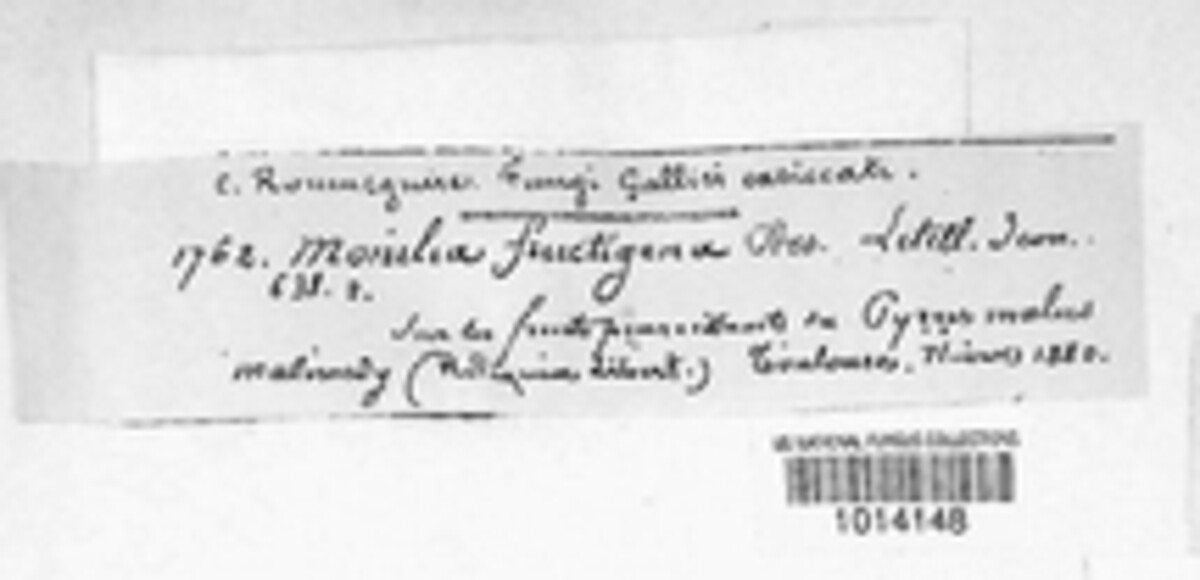 C. Roumeguère. Fungi Gallici exsiccati.
1762. Monilia fructigena Pers. Letell. Icon.
638. 2.
Sur les fruits pourrissants du Pyrus malus
Malmedy (Reliquiae Libert.) Toulouse, Hiver 1880.
US NATIONAL FUNGUS COLLECTIONS
1014148